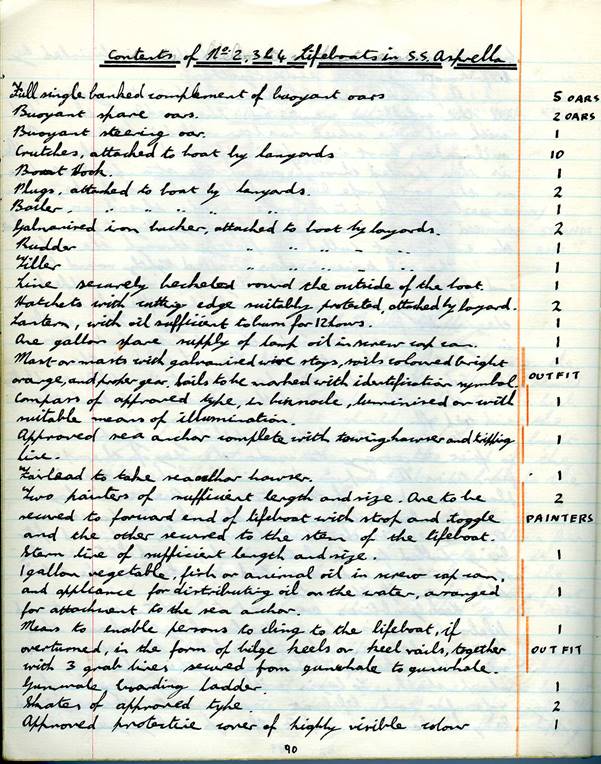 Contents of No. 2, 3 & 4 Lifeboats in S.S. Asprella
Full single banked complement of buoyant oars 5 OARS
Buoyant spare oars. 2 OARS
Buoyant steering oar. 1
Crutches, attached to boat by lanyards 10
Boat Hook. 1
Plugs, attached to boat by lanyards. 2
Bailer, " " " " " 1
Galvanised iron bucker, attached to boat by layords. 2
Rudder " " " " " 1
Tiller " " " " " 1
Line securely becketed round the outside of the boat. 1
Hatchets with cutting edge suitably protected, attached by layard. 2
Lantern, with oil sufficient to burn for 12 hours. 1
One gallon spare supply of lamp oil in screw cap can. 1
Mast or masts with galvanised wire stays, sails coloured bright 1
orange, and proper gear. Sails to be marked with identification symbol OUTFIT
Compass of approved type, in binnacle, luminised or with 1
suitable means of illumination.
Approved sea anchor complete with towing hawser and tripping 1
line.
Fairlead to take seaanchor hawser. 1
Two painters of sufficient length and size. One to be 2
secured to forward end of lifeboat with strop and toggle PAINTERS
and the other secured to the stem of the lifeboat.
Stern line of sufficient length and size. 1
1 gallon vegetable, fish or animal oil in screw cap can,
and appliance for distributing oil on the water, arranged 1
for attachment to the sea anchor.
Means to enable persons to cling to the lifeboat, if 1
overturned, in the form of bilge keels or keel rails, together OUTFIT
with 3 grab lines secured from gunwhale to gunwhale.
Gunwale boarding ladder. 1
Skates of approved type. 2
Approved protective cover of highly visible colour 1
90